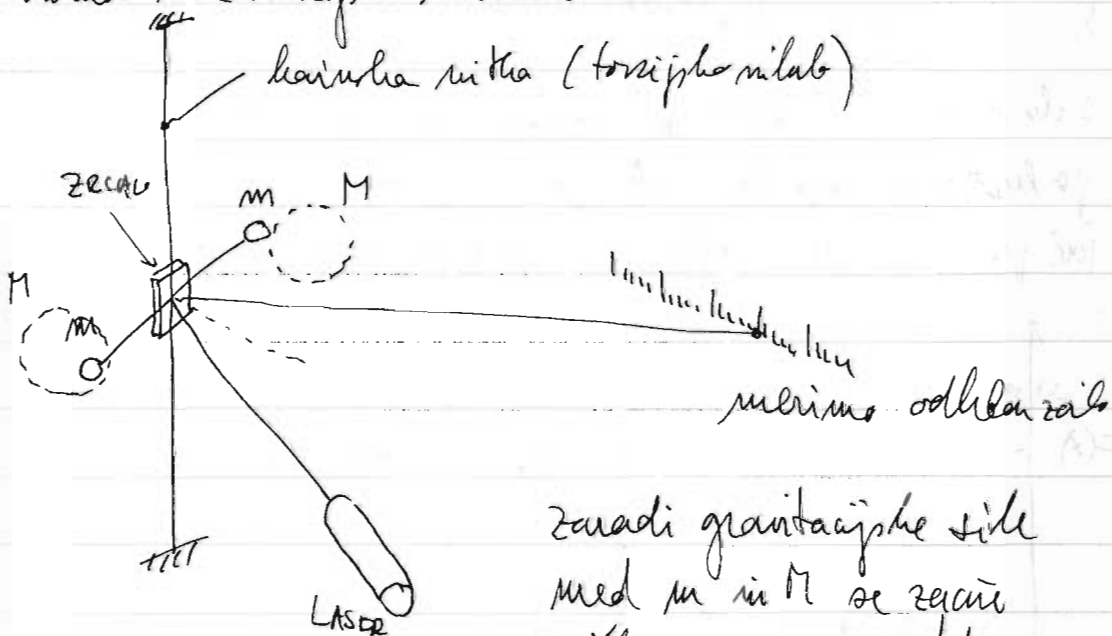 nitka (torzijsko nihalo)
ZRCALO
m
M
M
m
merimo odklon
LASER
zaradi gravitacijske sile
med m in M se začne